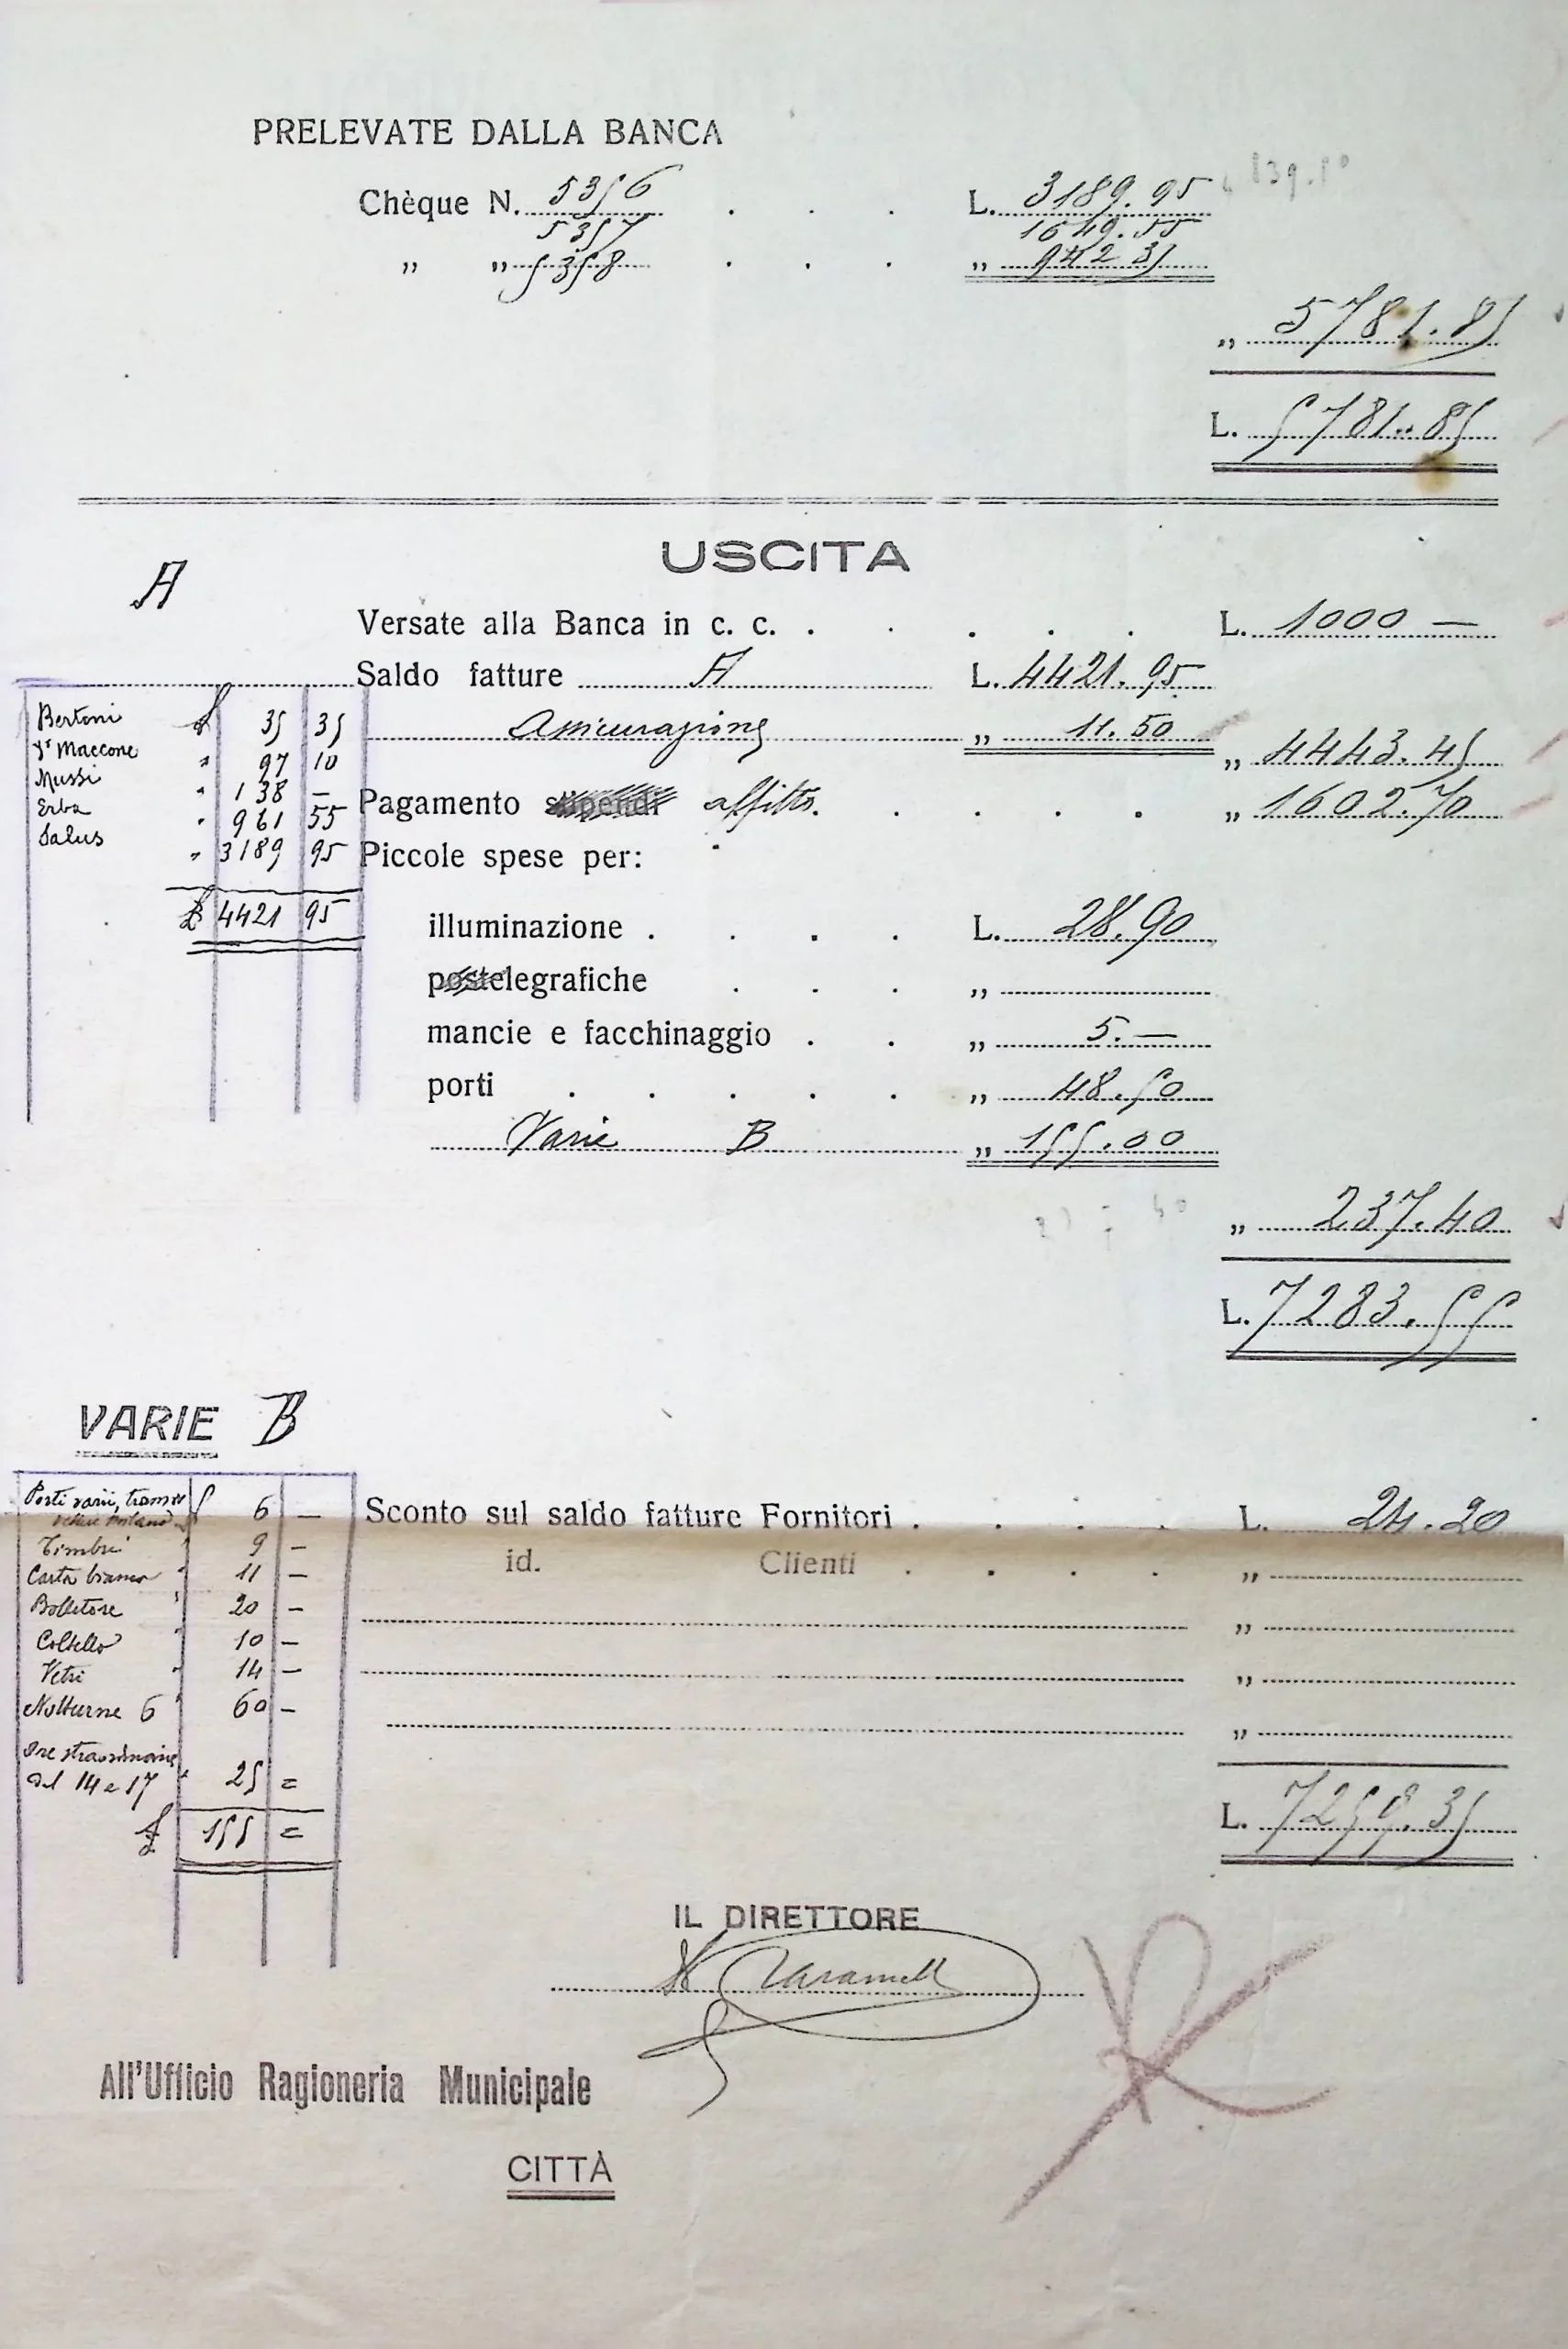 PRELEVATE DALLA BANCA
Chèque N. 5356 . . . L. 3189.95
5357 1649.55
„ „ 5358 . . . „ 942 35
„ 5781.85
L. 5781.85
USCITA
A
Versate alla Banca in c. c. . . . . . L. 1000 —
Saldo fatture A L. 4421.95
Assicurazione „ 11.50 „ 4443.45
Bertoni £ 35 35
Maccone " 97 10
Mussi " 138 —
Erba " 961 55
Salus " 3189 95
£ 4421 95
Pagamento stipendi affitto. . . . . „ 1602.70
Piccole spese per:
illuminazione . . . . L. 28.90
postelegrafiche . . . „
mancie e facchinaggio . . „ 5.—
porti . . . . . „ 48.50
Varie B „ 155.00
„ 237.40
L. 7283.55
VARIE B
Porti varii, £ 6 —
Timbri " 9 —
Carta bianca " 11 —
Bollettore " 20 —
Coltello " 10 —
Vetri " 14 —
Notturne 6 " 60 —
Ore straordinarie
del 14 e 17 " 25 =
£ 155 =
Sconto sul saldo fatture Fornitori . . . . L. 24.20
id. Clienti . . . . „
„
„
„
L. 7259.35
IL DIRETTORE
All'Ufficio Ragioneria Municipale
CITTÀ